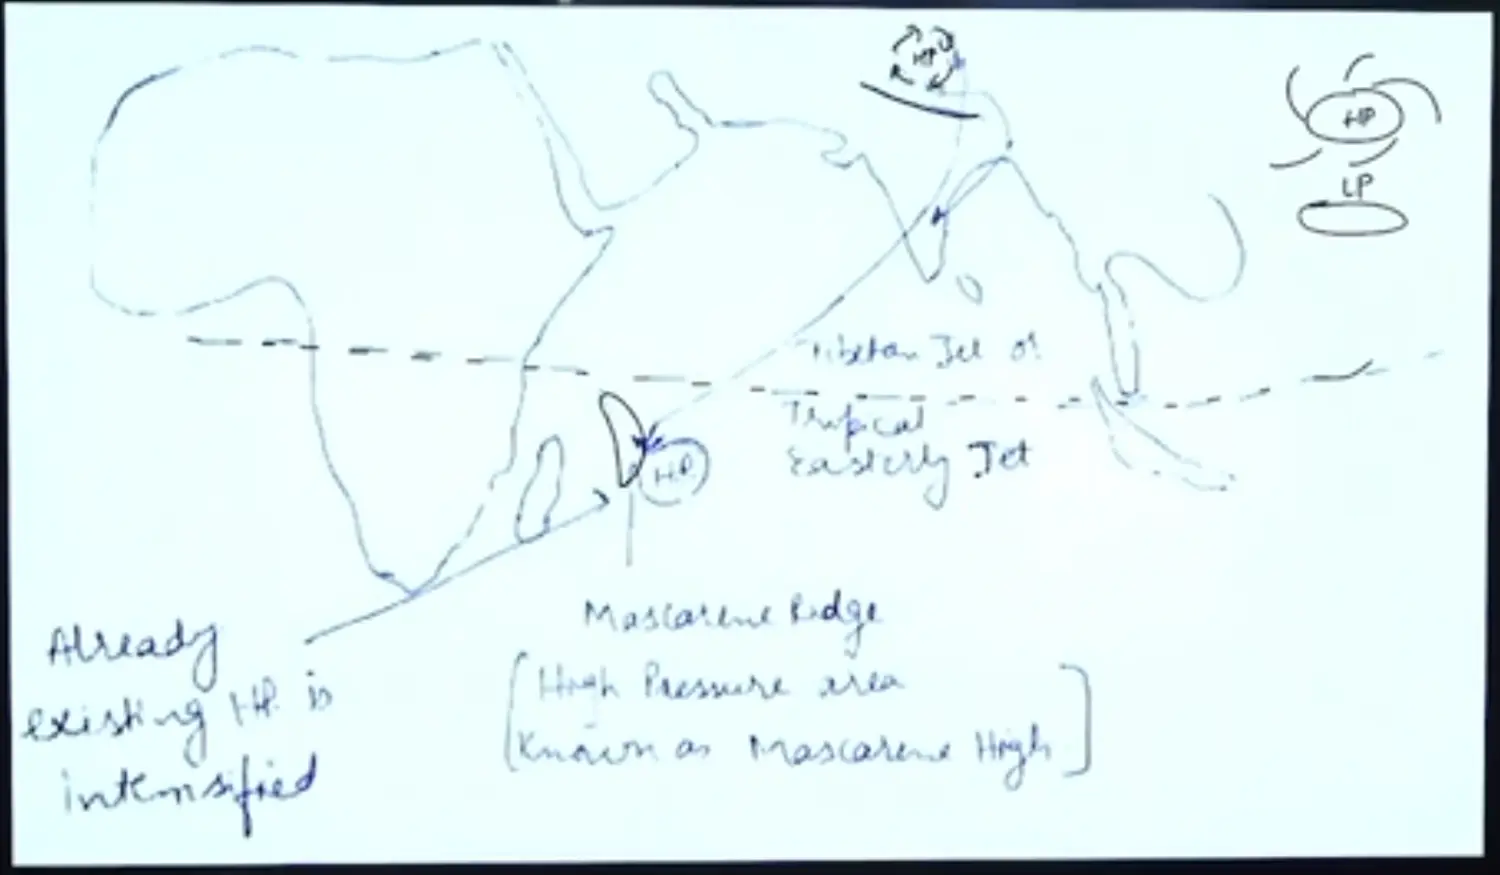 HP
HP
LP
Tibetan Jet or
Tropical
Easterly Jet
H.P.
Mascarene Ridge
High Pressure area
Known as Mascarene High
Already
existing HP. is
intensified